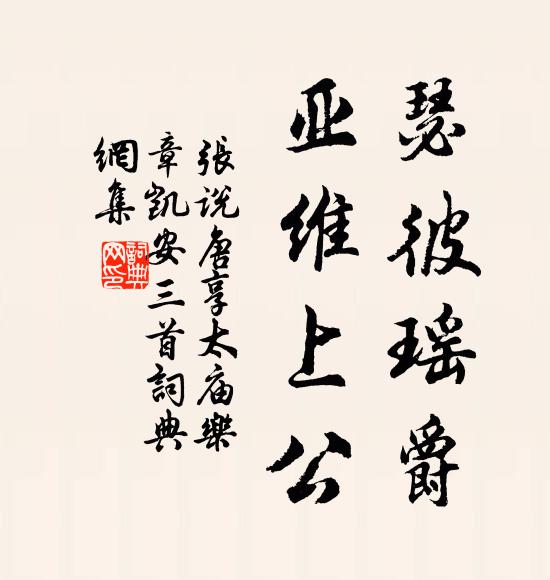 瑟彼瑶爵
亚维上公
張说唐享太庙樂
章凱安三首詞典
網集
詞典
网印